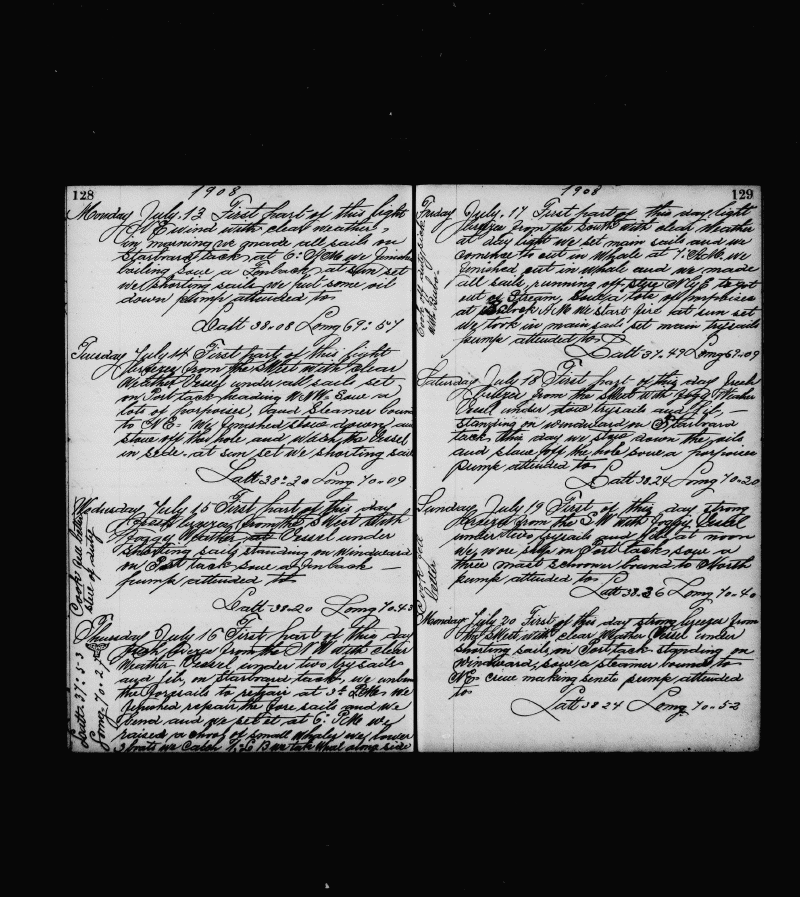 128
1908
Monday July. 13 First part of this light
N E wind with clear weather,
in morning we made all sails on
Starboard tack at 6: PM we finish
boiling saw a Finback at sun set
we shorting sails we put some oil
down pump attended to
Latt 38-08 Long 69:57
Tuesday July 14 First part of this light
breeze from the SWest with clear
Weather Vessel under all sails set
on Port tack heading W.N.W. Saw a
lots of porpoises, and Steamer bound
to NE: We finished stow down and
stove off the hole and wash the Vessel
in side. at sun set we shorting sail
Latt 38-20 Long 70-09
Wednesday July 15 First part of this day
fresh breeze from the SWest with
Foggy Weather Vessel under
shorting sails standing on windward
on Port tack saw a finback
pump attended to
Latt 38-20 Long 70-43
Cook
of duty
Thursday July 16 First part of this day
fresh breeze from the N W with clear
Weather Vessel under two trysails
and Jib, on starboard tack, we
the foresails to repair at 3: PM: We
finished repair the fore sails and we
bend and we set it at 6: PM we
raised a of small whales we lower
3 boats we we tak whal along side
Latt. 37:53
Long. 70:27
1908
129
Friday July. 17 First part of this day light
breeze from the South with clear Weather
at day light we set main sails and we
commence to cut in whale at 7: AM. we
finished cut in whale and we made
all sails, running off to get
out of stream, saw a lots of porpoises
at oclock AM we start fire at sun set
we took in main sails set main trysails
pump attended to
Latt 37-49 Long 69-09
Cook off duty sick
with
Saturday July 18 First part of this day fresh
breeze from the SWest with foggy Weather
Vesell under two trysails and Jib,
standing on windward on Starboard
tack, this day we stow down the oils
and stove off the hole saw a porpoises
pump attended to
Latt 38-24 Long 70-20
Sunday July 19 First of this day strong
breeze from the S W with foggy. Vesell
under two trysails and Jib at noon
We wore ship on Port tack, saw a
three mast schooner bound to North
pump attended to
Latt 38-26 Long 70-40
Cook
better
Monday July 20 First of this day strong breeze from
the SWest with clear Weather Vessel under
shorting sails, on Port tack standing on
windward, saw a steamer bound to
NE crew making senete pump attended
to
Latt 38 24 Long 70-53